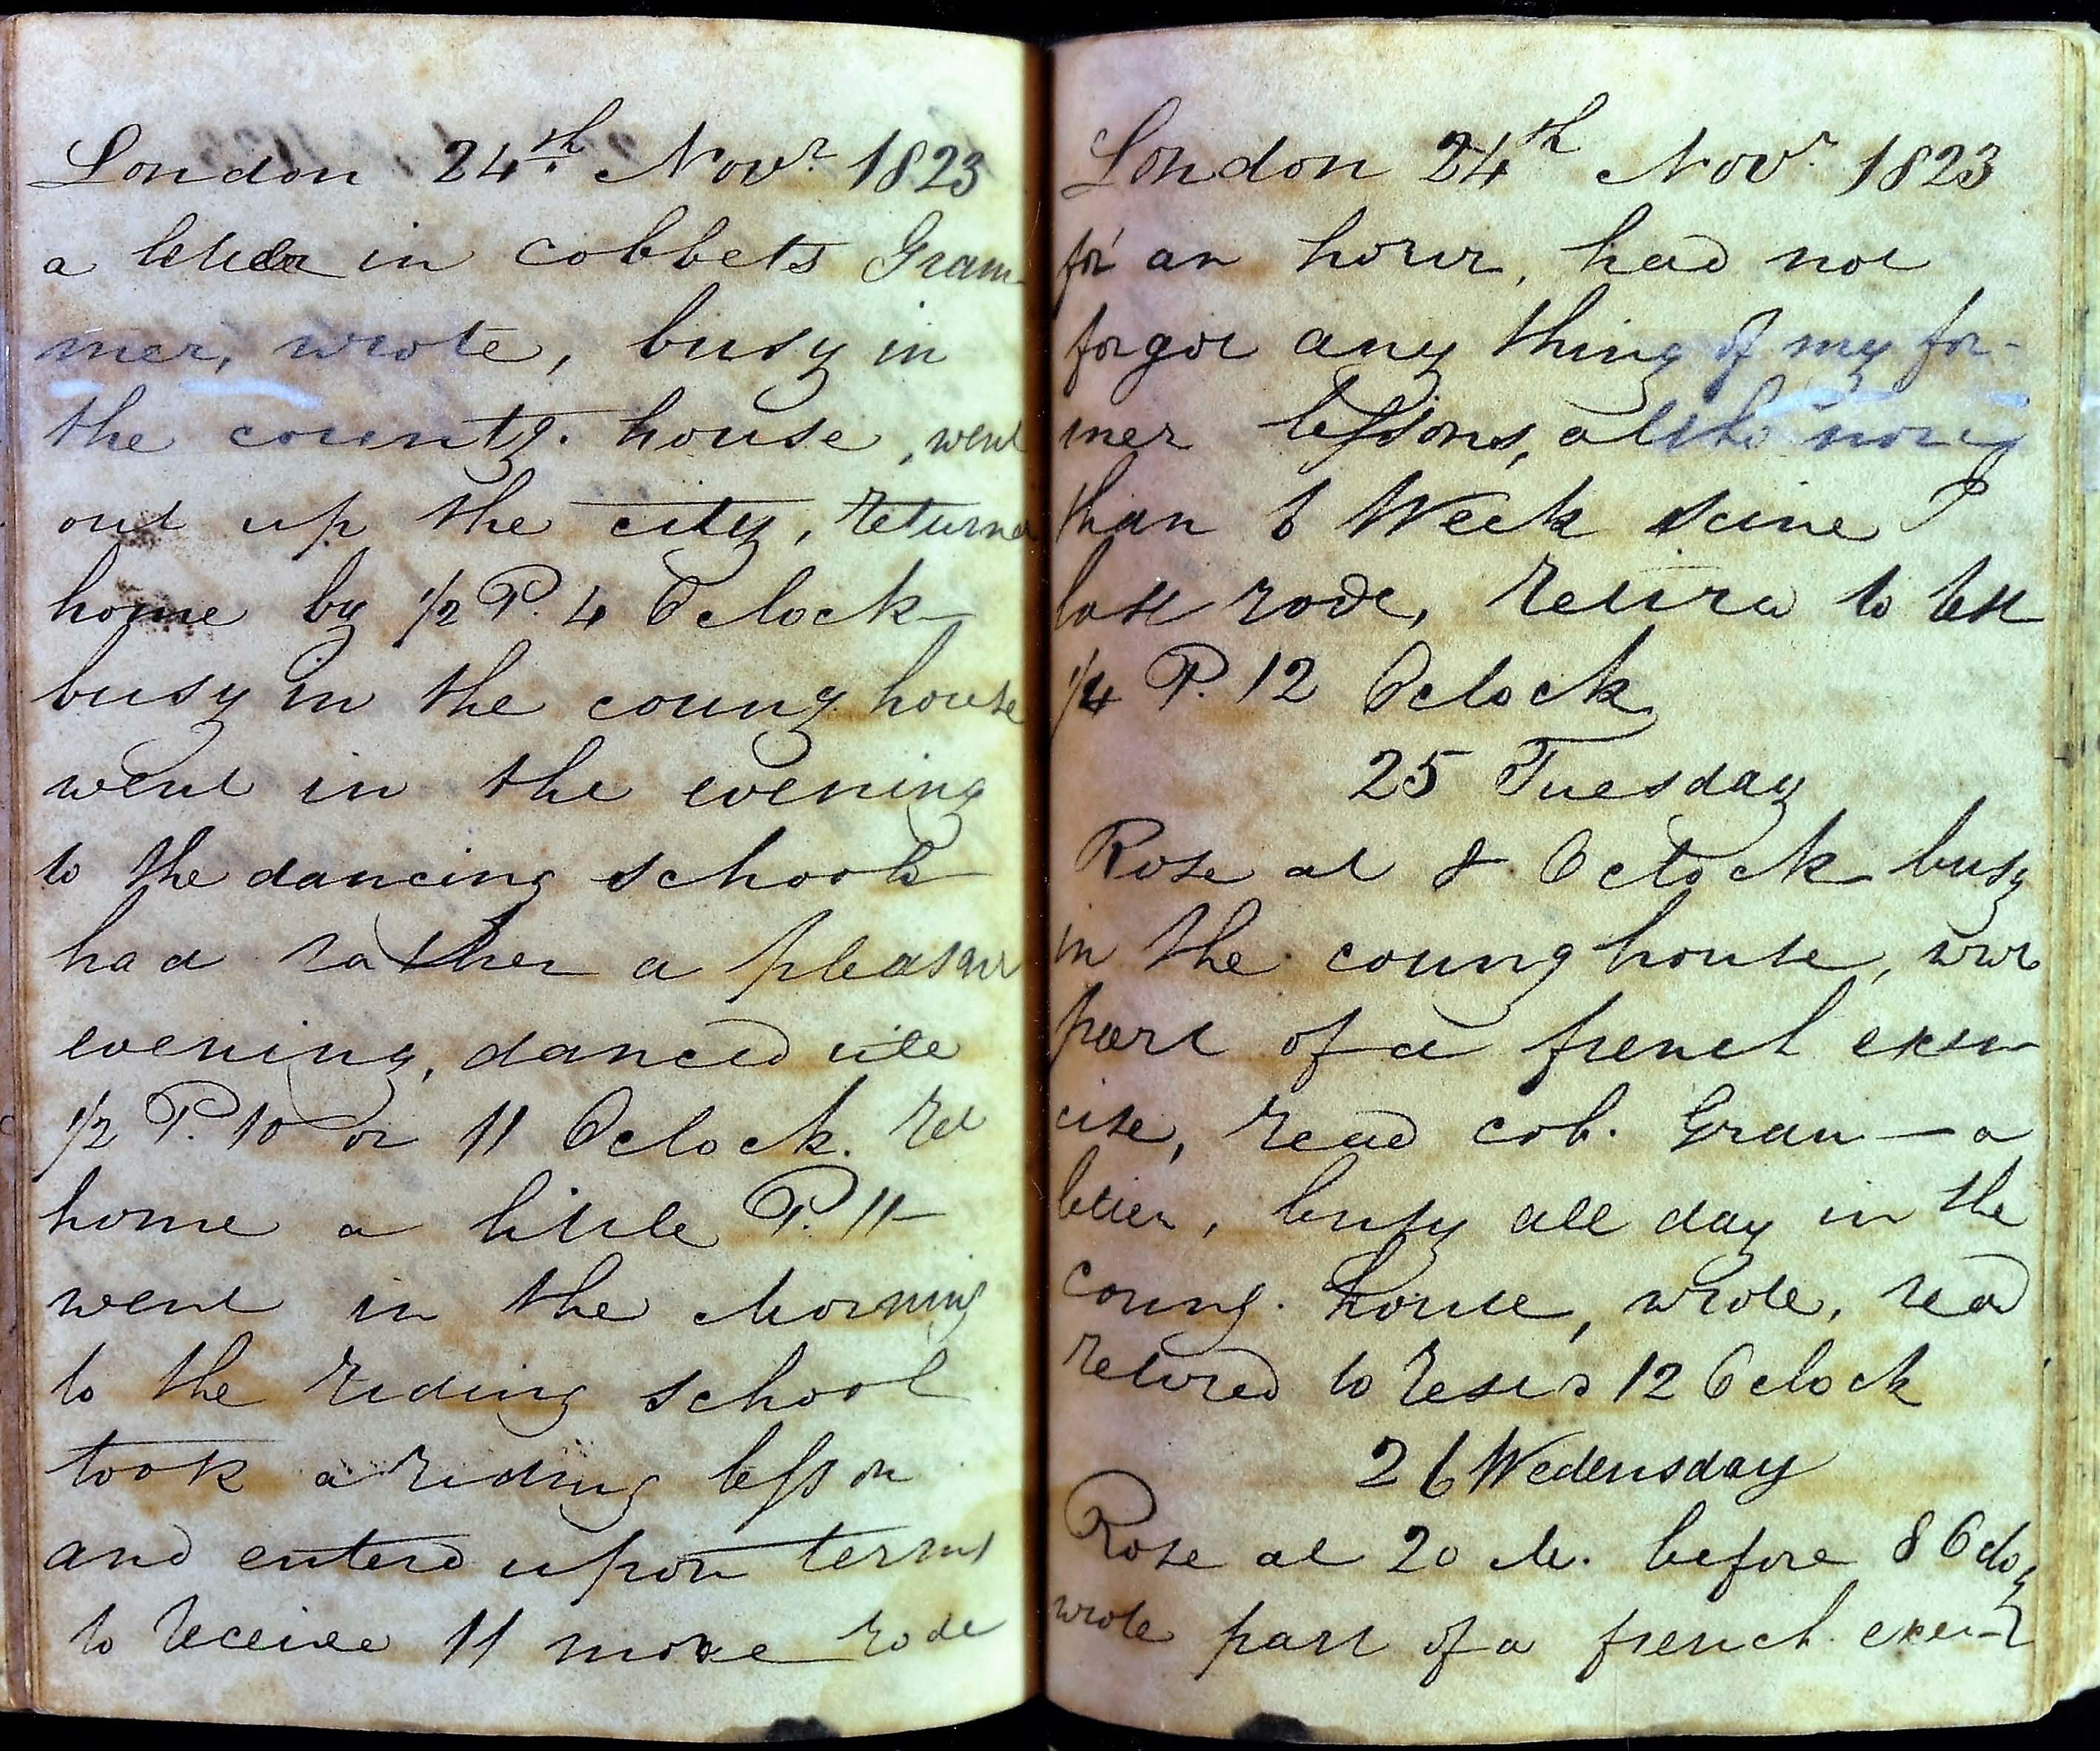 London 24th Novr 1823
a letter in cobbets Gram
mer, wrote, busy in
the countg. house, went
out up the city, returned
home by 1/2 P. 4 Oclock
busy in the coung house
went in the evening
to the dancing school
had rather a pleasant
evening, danced till
1/2 P. 10 or 11 Oclock. ret
home a little P. 11
went in the Morning
to the riding school
took a riding lesson
and enterd upon terms
to receive 11 more rode
London 24th Novr 1823
for an hour, had not
forgot any thing of my for-
mer lessons, altho
than 6 Week scine I
last rode, retird to rest
1/4 P. 12 Oclock
25 Tuesday
Rose at 8 Oclock busy
in the coung house, wrot
part of a french exer
cise, read cob. Gram a
letter, busy all day in the
coung. house, wrote, read
retired to rest 12 Oclock
26 Wedensday
Rose at 20 M. before 8 Oclo
wrote part of a french exer